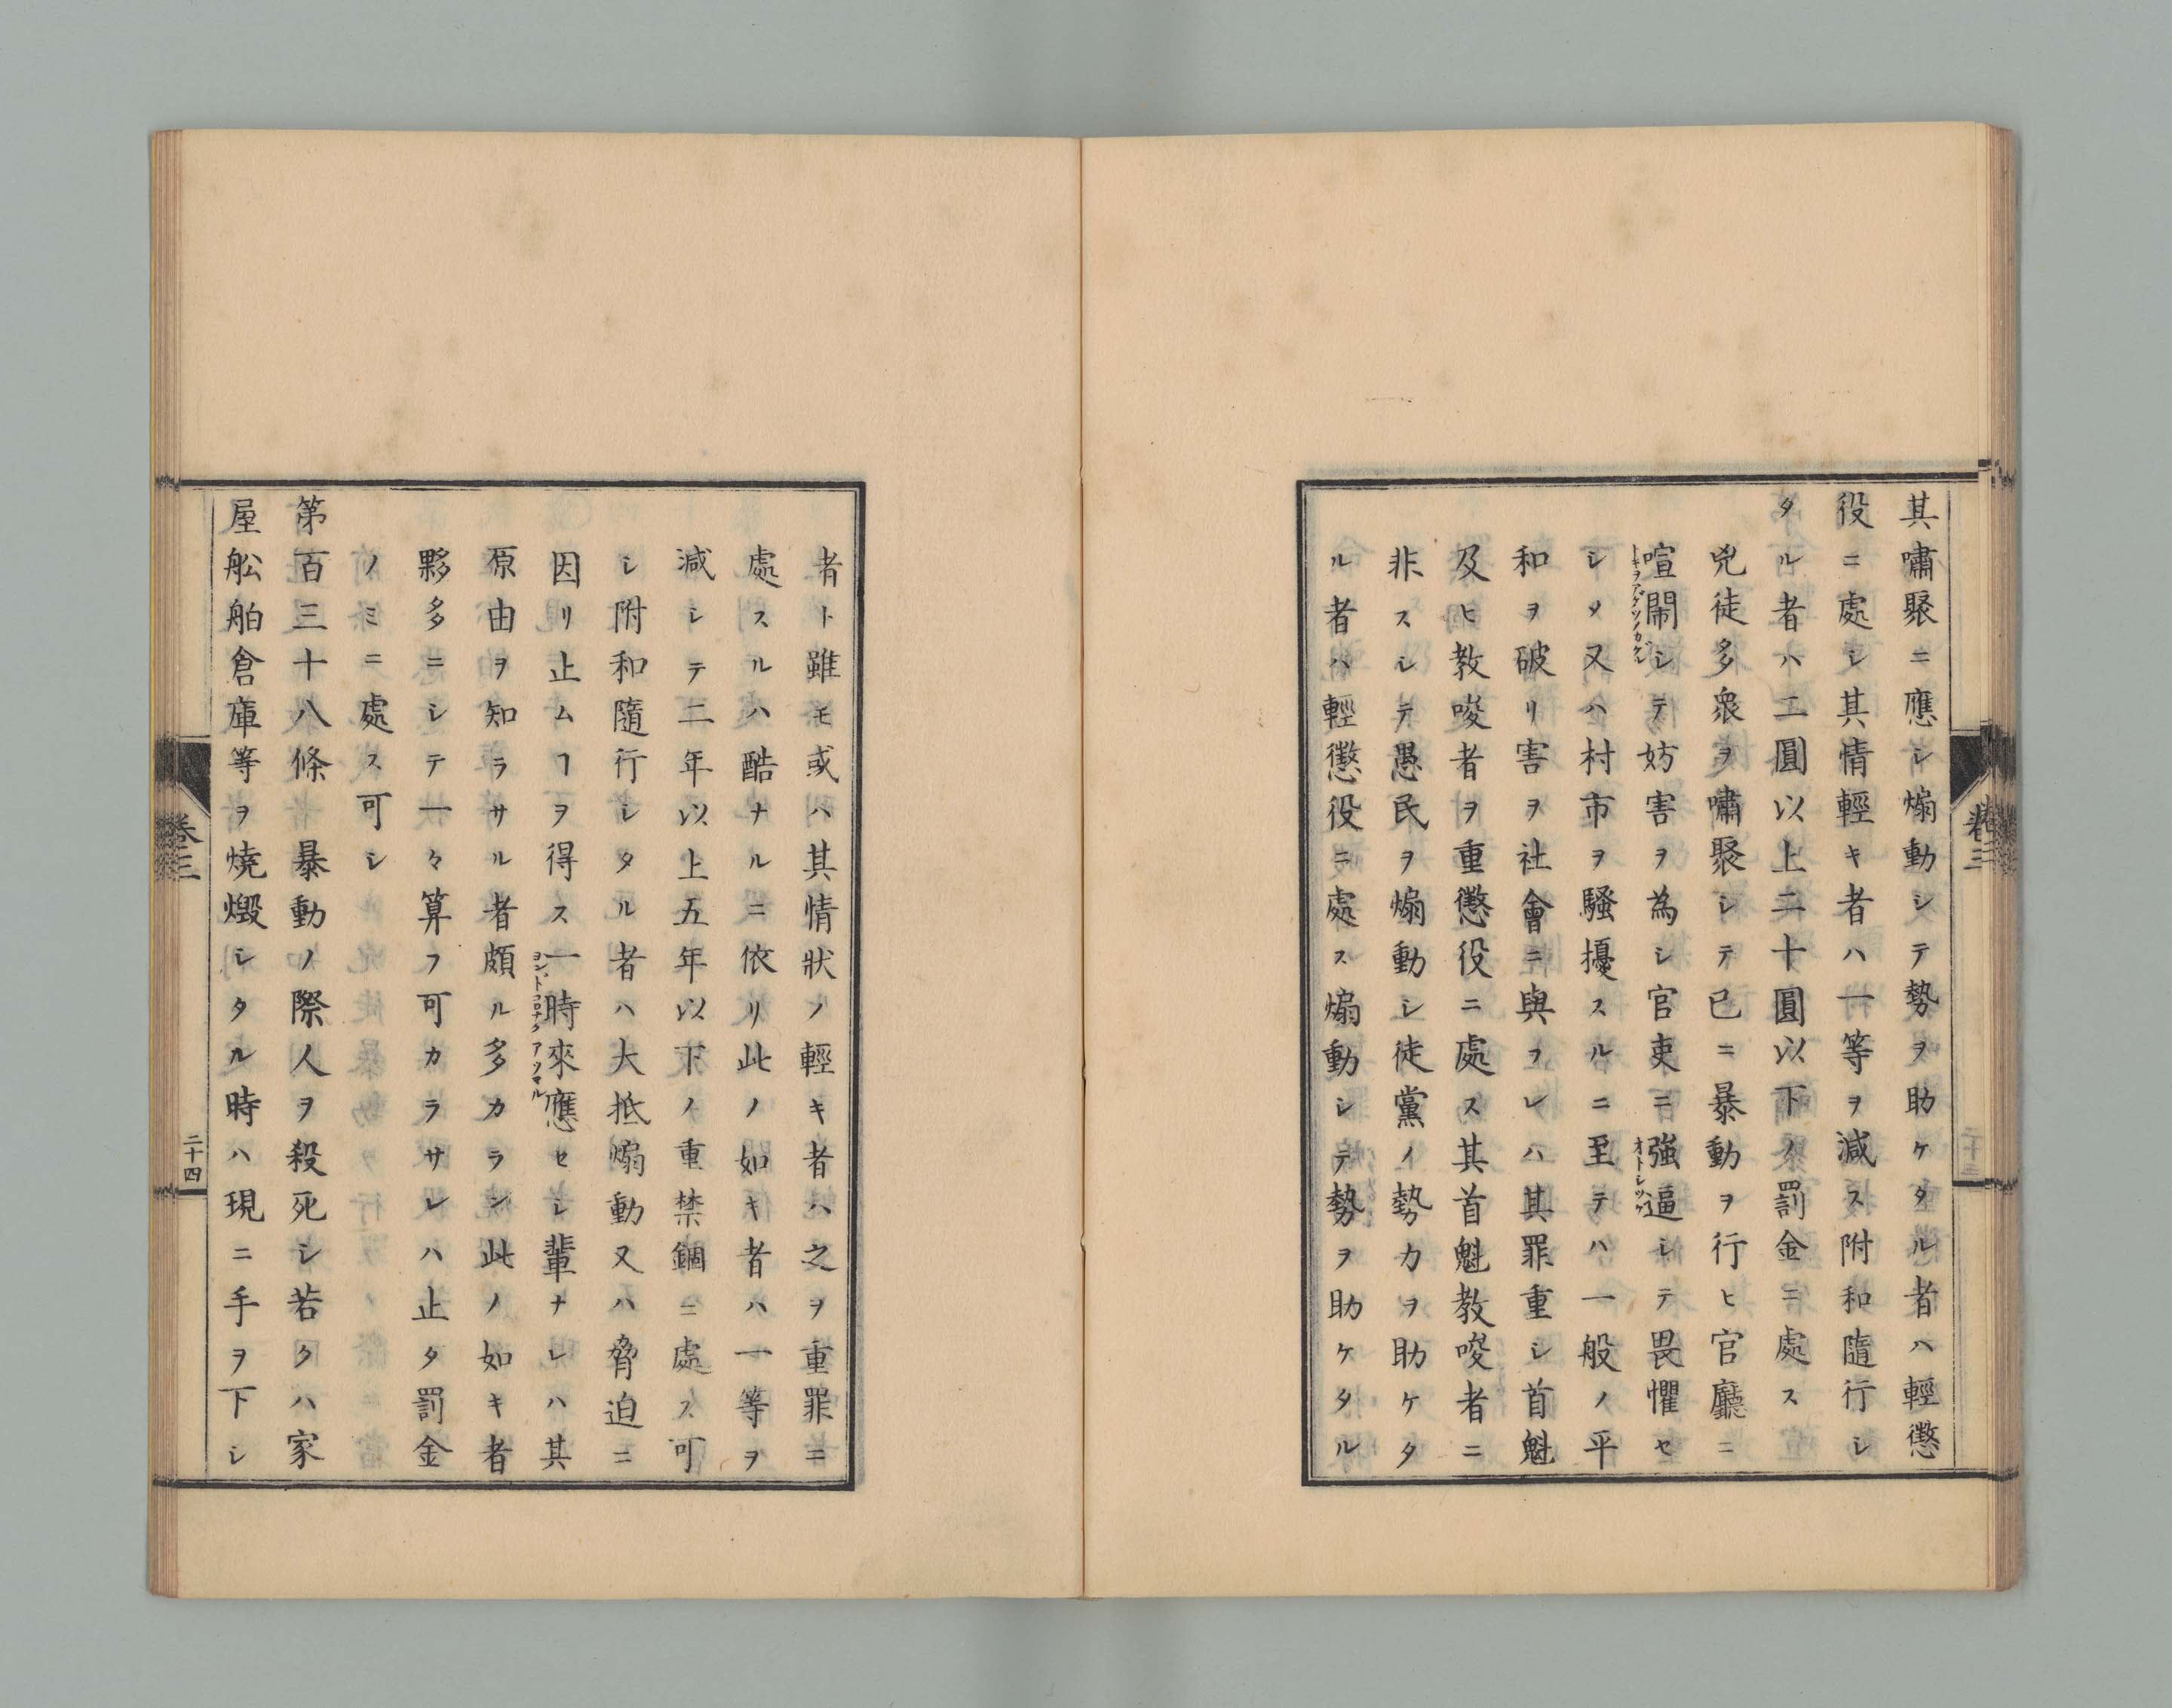 其嘯聚ニ應シ煽動シテ勢ヲ助ケタル者ハ輕懲
役ニ處シ其情輕キ者ハ一等ヲ減ス附和隨行シ
タル者ハ二圓以上二十圓以下ノ罰金ニ處ス
兇徒多衆ヲ嘯聚シテ已ニ暴動ヲ行ヒ官廳ニ
喧鬧シテ妨害ヲ為シ官吏ニ強逼シテ畏懼セ
シメ又ハ村市ヲ騒擾スルニ至テハ一般ノ平
和ヲ破リ害ヲ社會ニ與フレハ其罪重シ首魁
及ヒ教唆者ヲ重懲役ニ處ス其首魁教唆者ニ
非スシテ愚民ヲ煽動シ徒黨ノ勢力ヲ助ケタ
ル者ハ輕懲役ニ處ス煽動シテ勢ヲ助ケタル
卷三
者ト雖モ或ハ其情狀ノ輕キ者ハ之ヲ重罪ニ
處スルハ酷ナルニ依リ此ノ如キ者ハ一等ヲ
減シテ二年以上五年以下ノ重禁錮ニ處ス可
シ附和隨行シタル者ハ大抵煽動又ハ脅迫ニ
因リ止ムヿヲ得ス一時來應セシ輩ナレハ其
原由ヲ知ラサル者頗ル多カラン此ノ如キ者
夥多ニシテ一々算フ可カラサレハ止タ罰金
ノミニ處ス可シ
第百三十八條 暴動ノ際人ヲ殺死シ若クハ家
屋舩舶倉庫等ヲ燒燬シタル時ハ現ニ手ヲ下シ
卷三
二十四